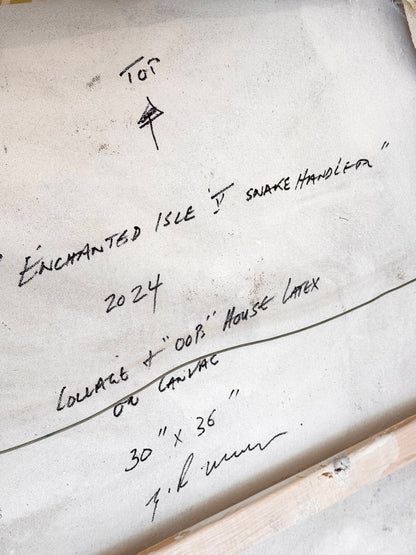 TOP
"ENCHANTED ISLE V SNAKE HANDLER"
2024
COLLAGE + "OOPS" HOUSE LATEX
ON CANVAS
30" x 36"